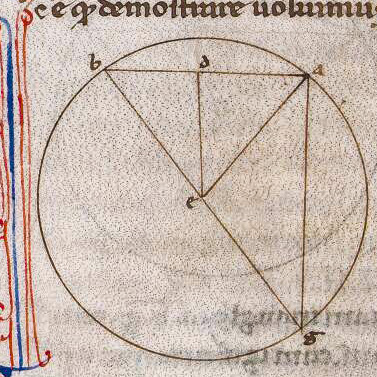 ce ꝙ demostrare uoluimus
b d a
e
g